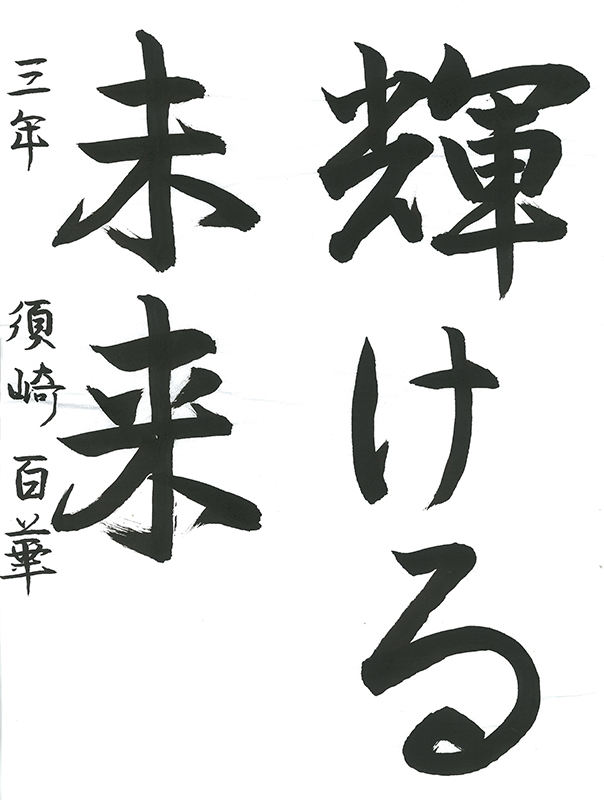 輝ける
未来
三年 須崎百華